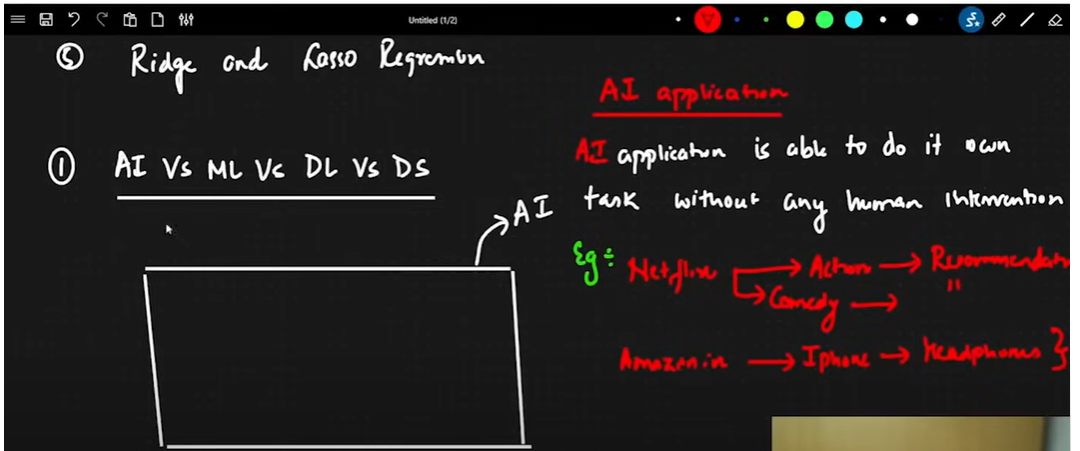 Untitled (1/2)
⑤ Ridge and Lasso Regression
① AI Vs ML Vs DL Vs DS
AI
AI application
AI application is able to do it own
task without any human Intervention
Eg ÷ Netflix → Action → Recommendatn
→ Comedy → "
Amazon.in → Iphone → Headphones }